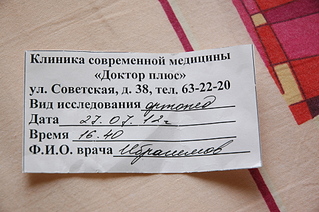 Клиника современной медицины
«Доктор плюс»
ул. Советская, д. 38, тел. 63-22-20
Вид исследования ортопед
Дата 27.07.12г
Время 16.40
Ф.И.О. врача Ибрагимов